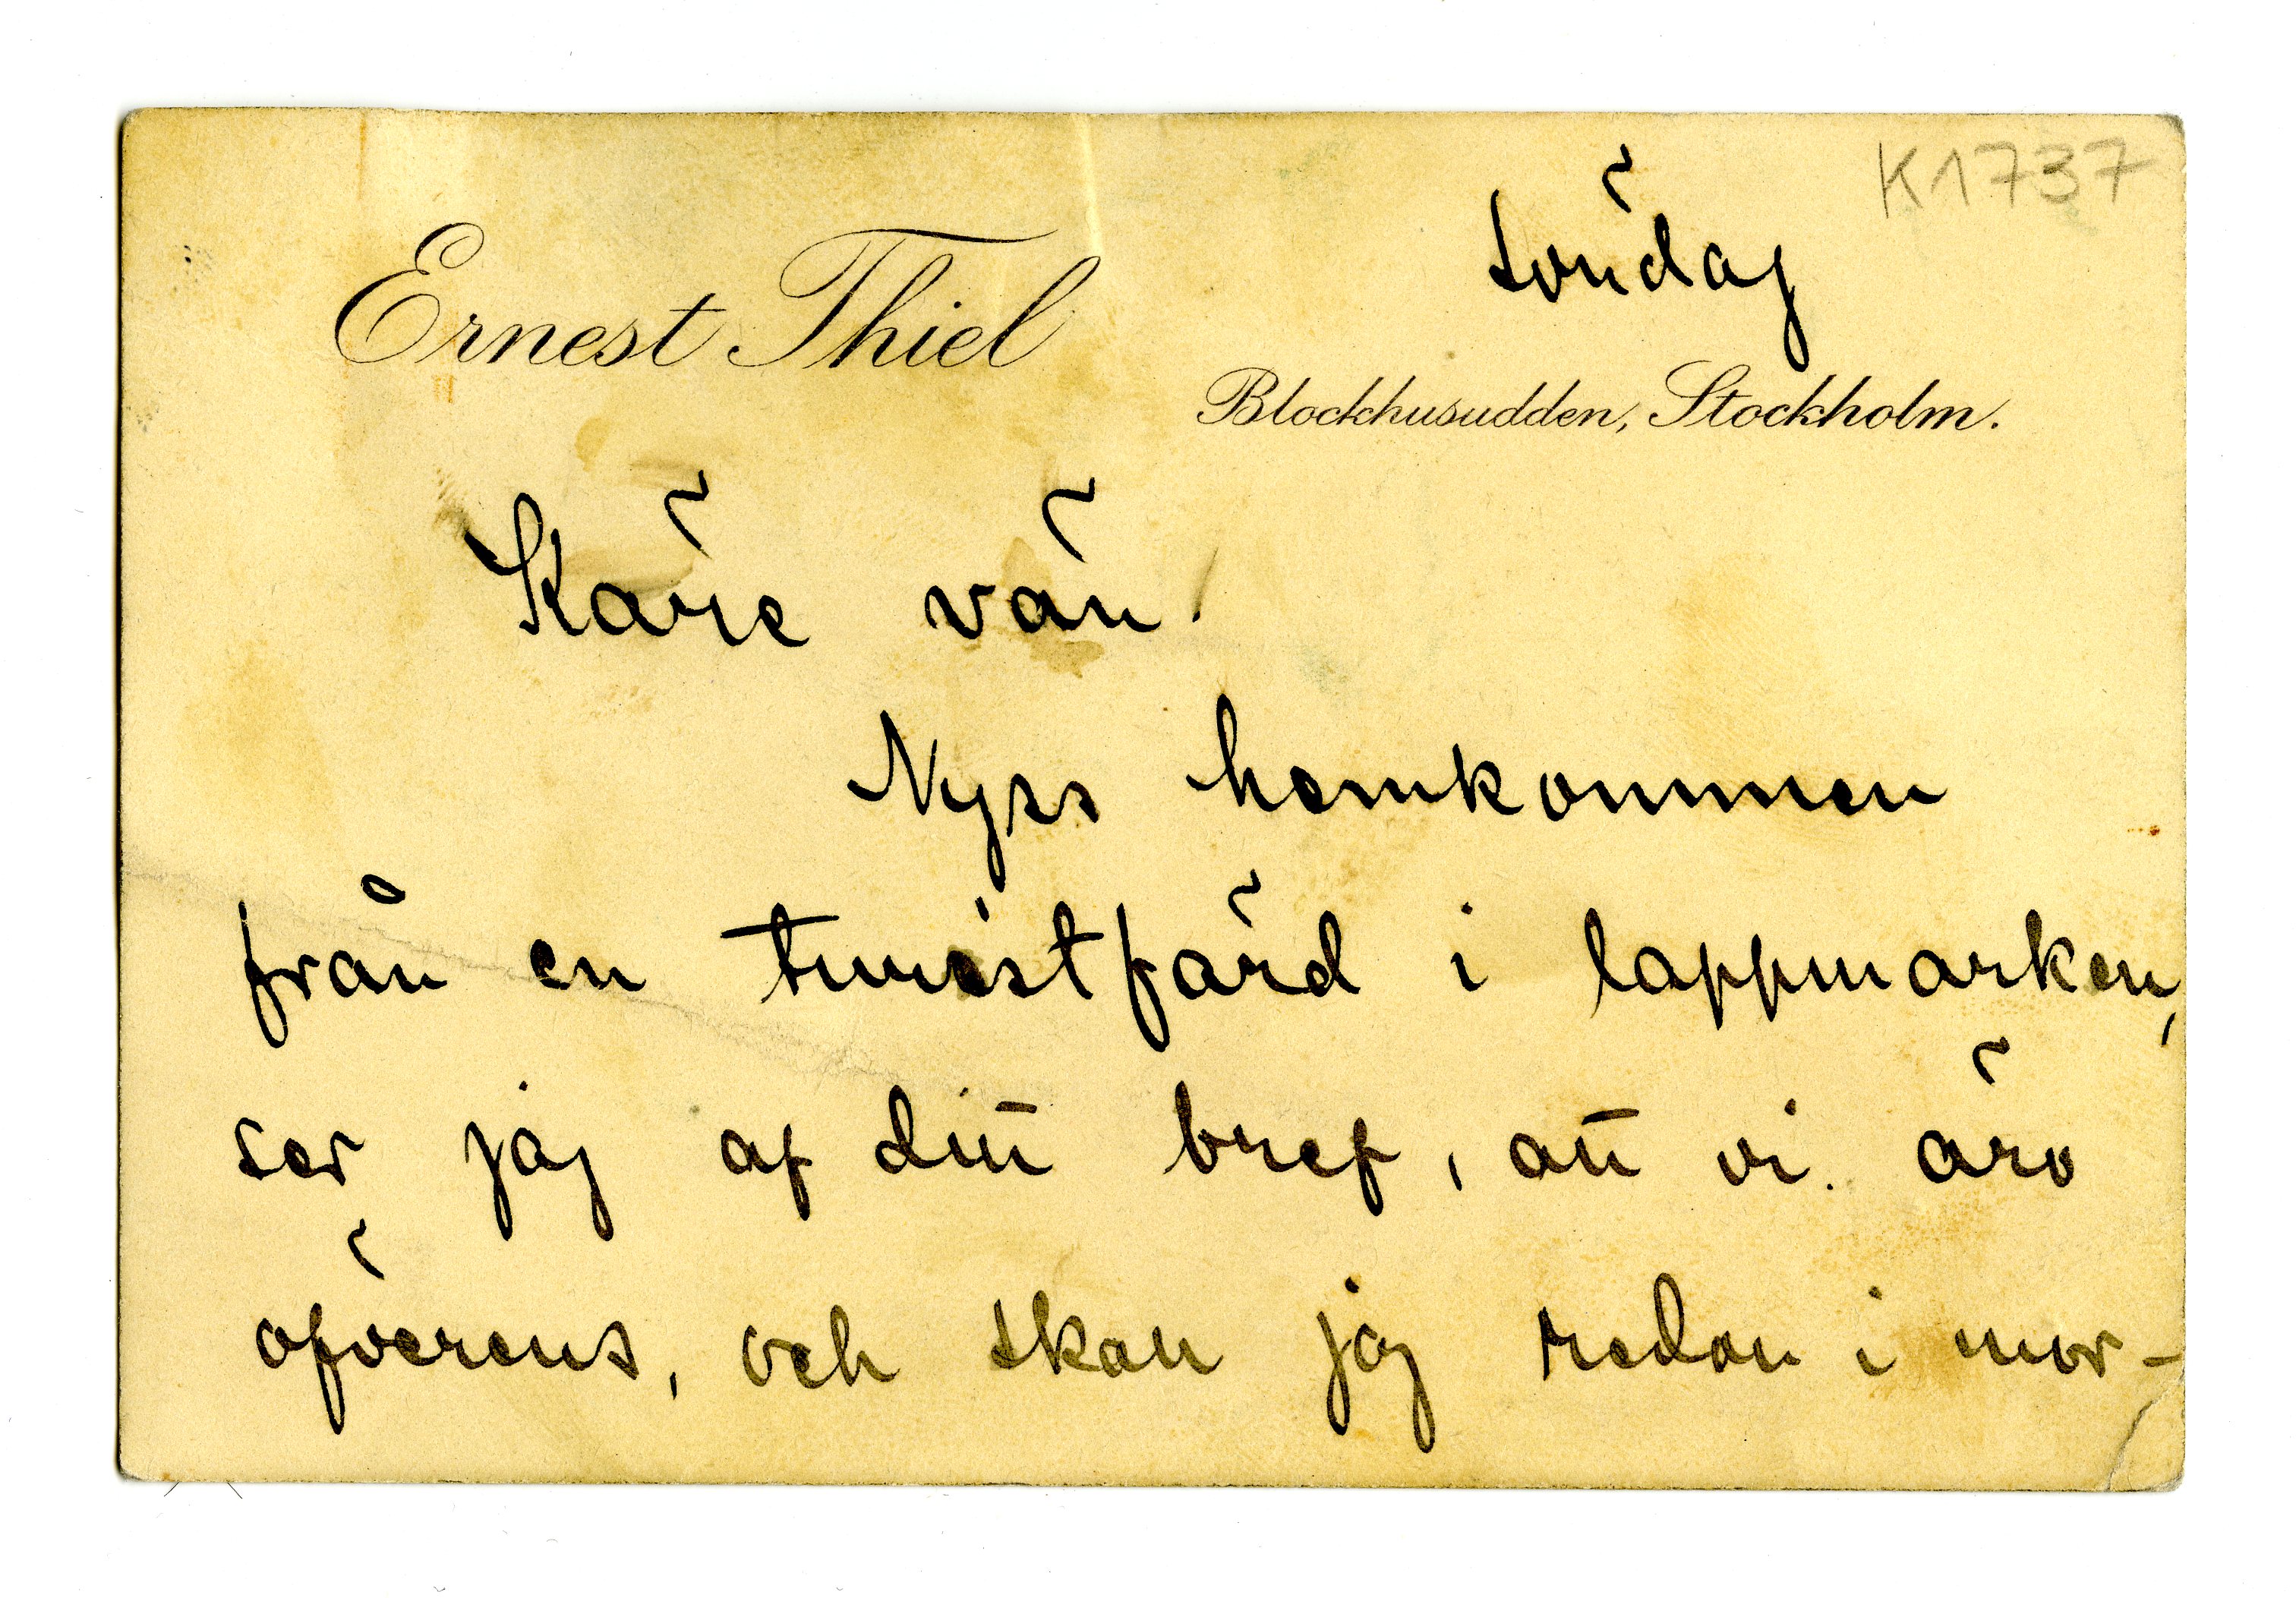 K1737
söndag
Ernest Thiel
Blockhusudden, Stockholm.
Käre vän!
Nyss hemkommen
från en turistfärd i lappmarken,
ser jag af ditt bref, att vi äro
öfverens, och skall jag redan i mor-